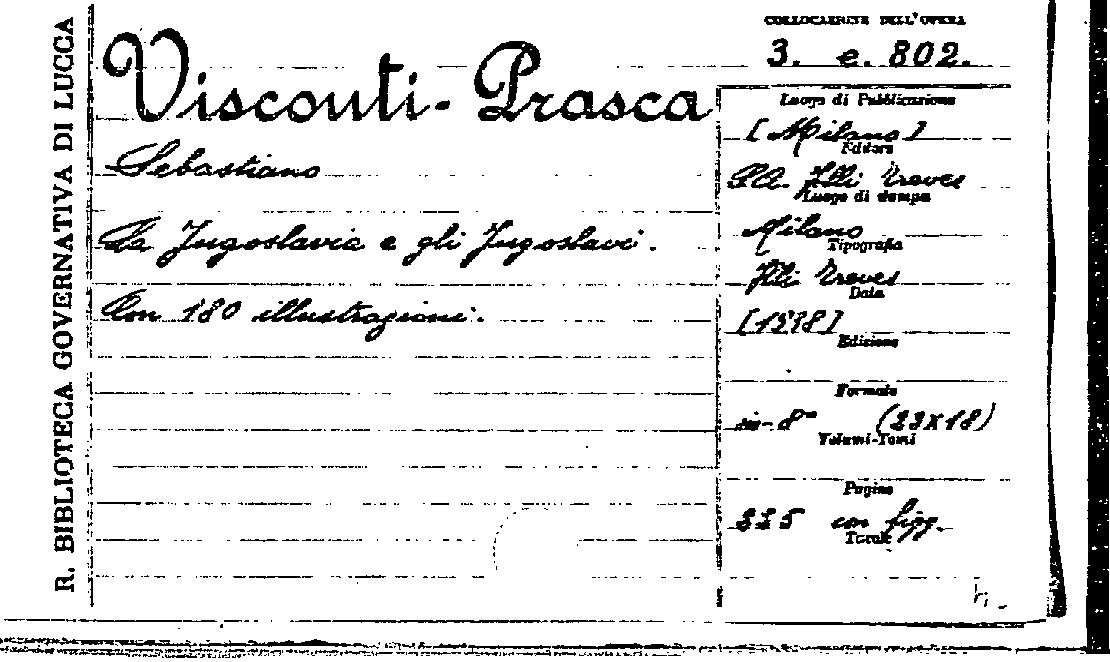 R. BIBLIOTECA GOVERNATIVA DI LUCCA
COLLOCAZIONE DELL'OPERA
3. e. 802.
Visconti-Prasca
Sebastiano
La Jugoslavia e gli Jugoslavi.
Con 180 illustrazioni.
Luogo di Pubblicazione
[Milano]
Editore
S.A. F.lli Treves
Luogo di stampa
Milano
Tipografia
F.lli Treves
Data
Edizione
Formato
in-8° (23x18)
Volumi-Tomi
Pagine
con figg.
Tavole